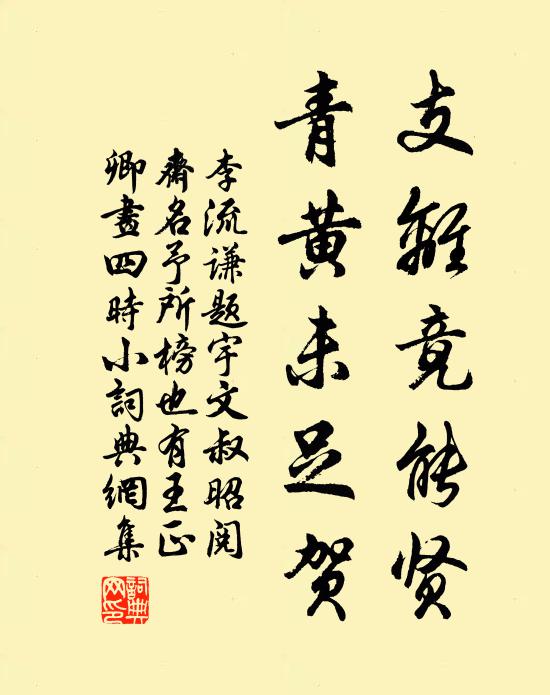 支離竟能贤
青黄未足贺
李流谦题宇文叔昭阅
齋名予所榜也有王正
卿畫四時小詞典網集
詞典网印